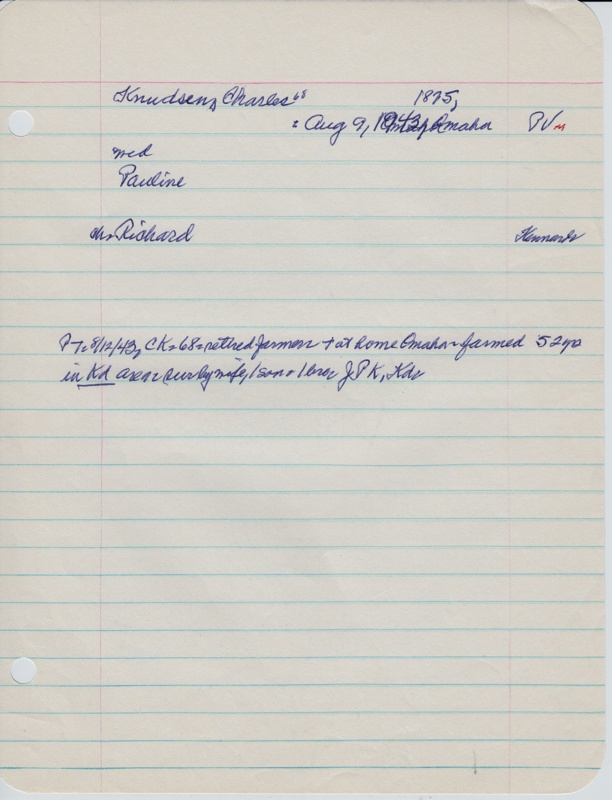 Knudsen, Charles 68 1875,
: Aug 9, 1943, Omaha PV
med
Pauline
ch. Richard Kennard
P-T. 8/12/43, CK. 68. retired farmer + at home Omaha. farmed 52 yo
in Kd area surby wife, 1 son + 1 bro. J P K, Kd